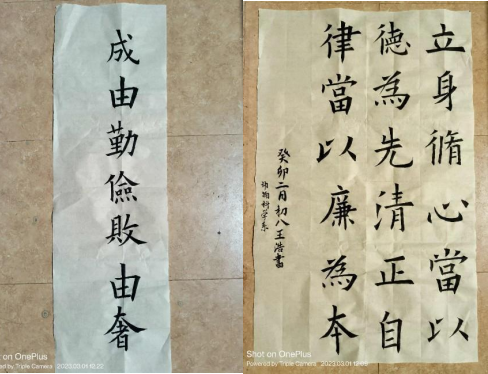 成由勤儉敗由奢
on OnePlus
by Triple Camera 2023.03.01
立身脩心當以
徳為先清正自
律當以廉為本
癸卯二月初八王浩書
科学系
Shot on OnePlus
Powered by Triple Camera 2023.03.01